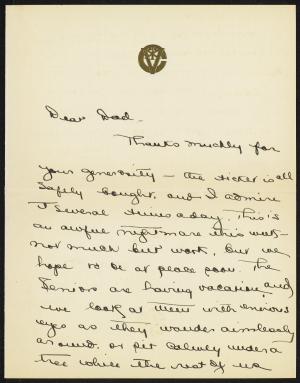 Dear Dad -
Thanks muchly for
your generosity - the ticket is all
safely bought, and I admire
it several times a day. This is
an awful nightmare this week -
not much but work, but we
hope to be at peace soon. The
Seniors are having vacation, and
we look at them with envious
eyes as they wander aimlessly
around, or sit calmly under a
tree while the rest of us